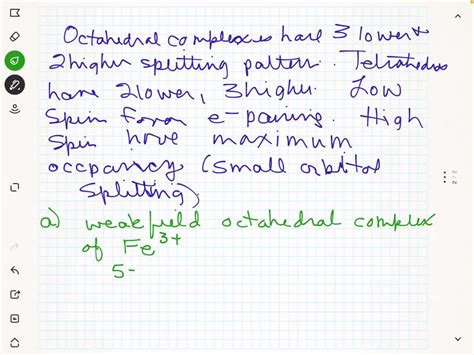 Octahedral complexes have 3 lower &
2 higher splitting pattern. Tetrahedral
have 2 lower, 3 higher. Low
Spin favor e- pairing. High
Spin have maximum
occpancy (small orbital
Splitting)
a) weak field octahedral complex
of Fe3+
5-
2/2